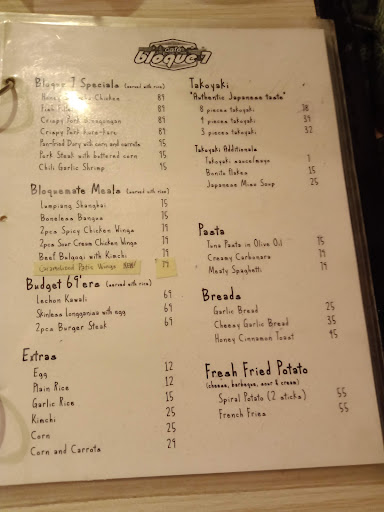 Cafe
bloque 7
Bloque 7 Specials (served with rice)
Chicken 89
89
Crispy Pork Binagongan 89
Crispy Pork kare-kare 89
Pan-fried Dory with corn and carrots 95
Pork Steak with buttered corn 95
Chili Garlic Shrimp 95
Bloquemate Meals (served with rice)
Lumpiang Shanghai 75
Boneless Bangus 75
2pcs Spicy Chicken Wings 79
2pcs Sour Cream Chicken Wings 79
Beef Bulgogi with Kimchi 79
Caramelized Patis Wings NEW! 79
Budget 69'ers (served with rice)
Lechon Kawali 69
Skinless Longganisa with egg 69
2pcs Burger Steak 69
Extras
Egg 12
Plain Rice 12
Garlic Rice 15
Kimchi 25
Corn 25
Corn and Carrots 29
Takoyaki
"Authentic Japanese taste"
8 pieces takoyaki 78
4 pieces takoyaki 39
3 pieces takoyaki 32
Takoyaki Additionals
Takoyaki sauce/mayo 7
Bonito flakes 15
Japanese Miso Soup 25
Pasta
Tuna Pasta in Olive Oil 75
Creamy Carbonara 79
Meaty Spaghetti 79
Breads
Garlic Bread 25
Cheesy Garlic Bread 35
Honey Cinnamon Toast 45
Fresh Fried Potato
(cheese, barbeque, sour & cream)
Spiral Potato (2 sticks) 55
French Fries 55